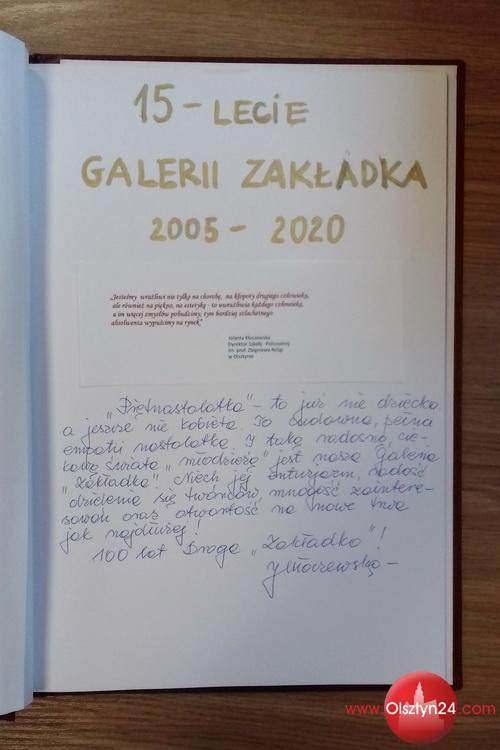 15 - LECIE
GALERII ZAKŁADKA
2005 - 2020
„Jesteśmy wrażliwi nie tylko na chorobę, na kłopoty drugiego człowieka,
ale również na piękno, na estetykę - to uwrażliwia każdego człowieka,
a im więcej zmysłów pobudzimy, tym bardziej szlachetnego
absolwenta wypuścimy na rynek"
Jolanta Kłoczewska
Dyrektor Szkoły Policealnej
im. prof. Zbigniewa Religi
w Olsztynie
„Piętnastolatka" - to już nie dziecko
a jeszcze nie kobieta. To cudowna, pełna
empatii nastolatka. I taką radosną, cie-
kawą świata „młodzieżą" jest nasza Galeria
"Zakładka". Niech jej entuzjazm, radość
dzielenia się twórców, mnogość zaintere-
sowań oraz otwartość na nowe trwa
jak najdłużej!
100 lat Droga „Zakładko"!
JKłoczewska
www.Olsztyn24.com